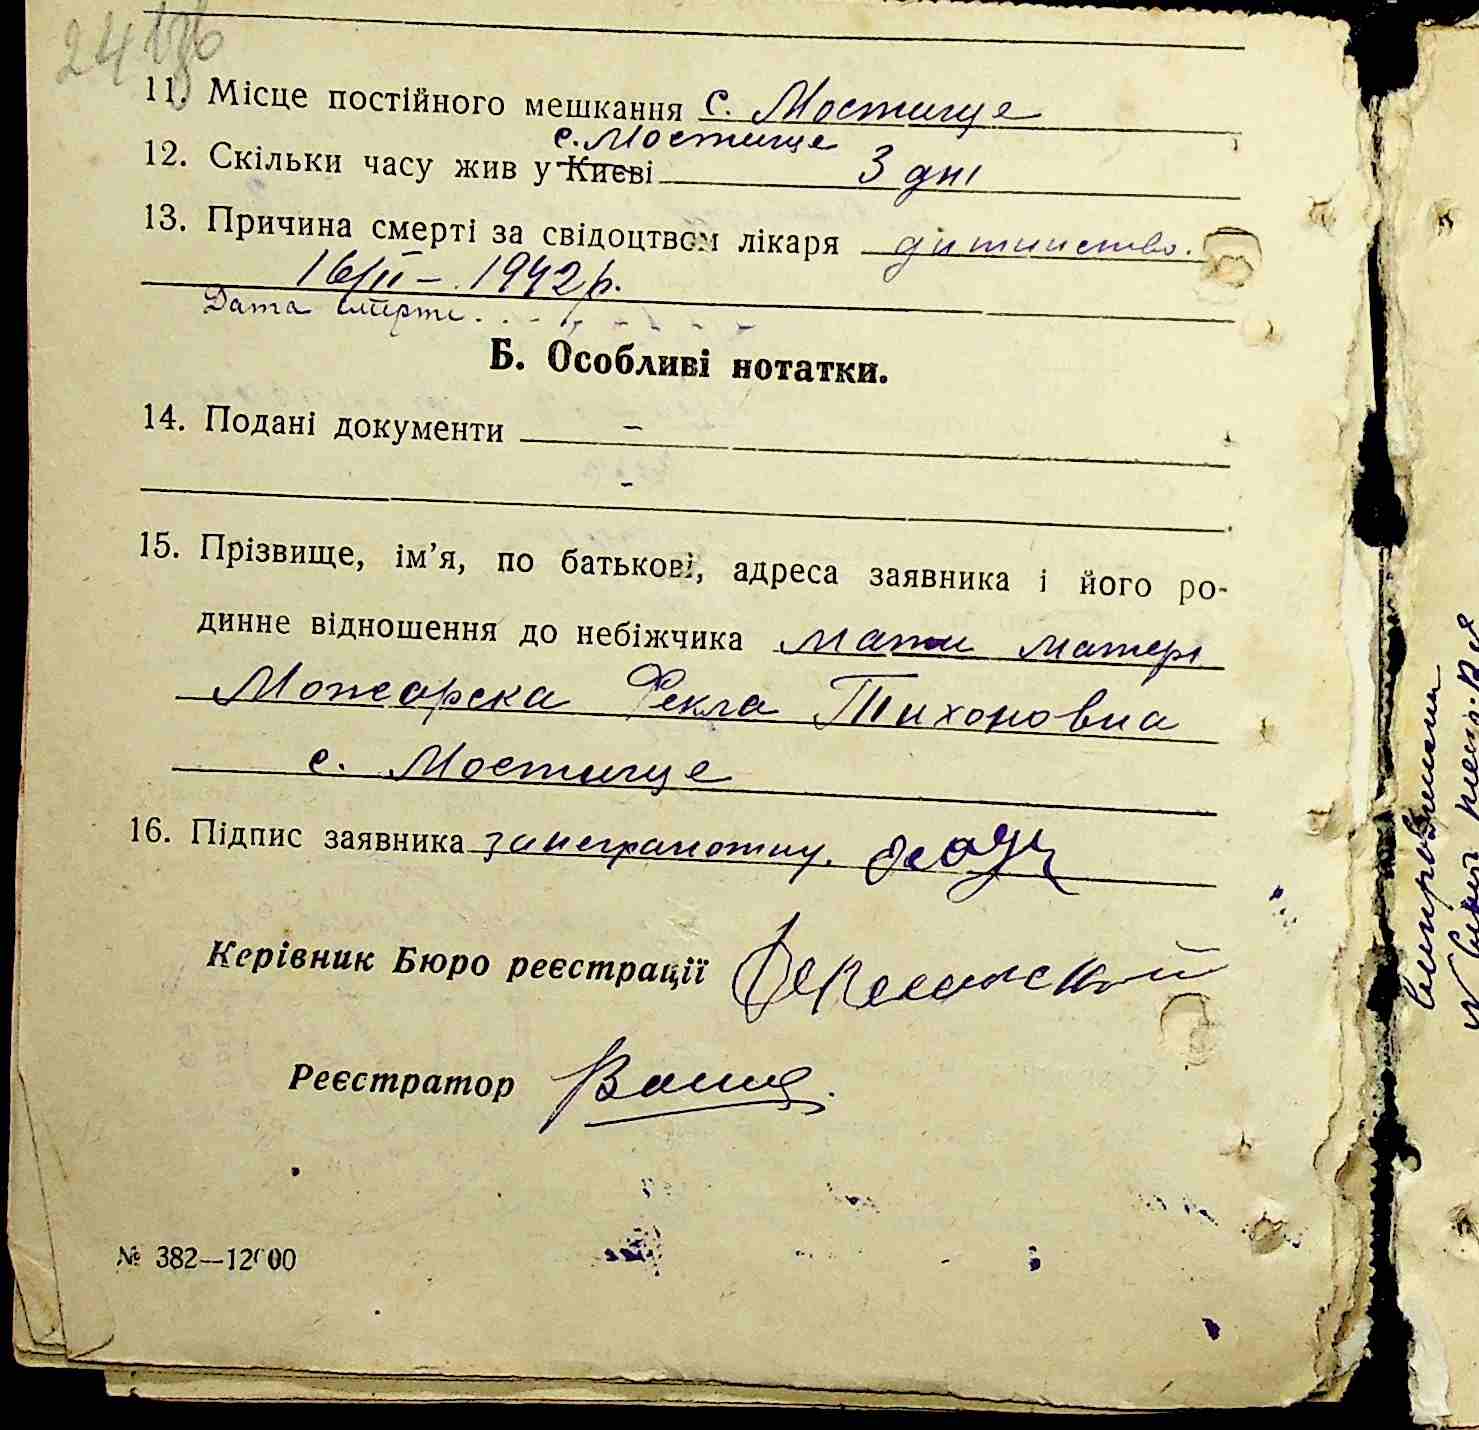 24
11. Місце постійного мешкання с. Мостище
с. Мостище
12. Скільки часу жив у Києві 3 дні
13. Причина смерті за свідоцтвом лікаря дитинство.
16/II – 1942 р.
Дата смерти
Б. Особливі нотатки.
14. Подані документи –
-
15. Прізвище, ім’я, по батькові, адреса заявника і його ро-
динне відношення до небіжчика мати матері
Можарска Фекла Тихоновна
с. Мостище
16. Підпис заявника за неграмотну.
Керівник Бюро реєстрації
Реєстратор
№ 382—12000